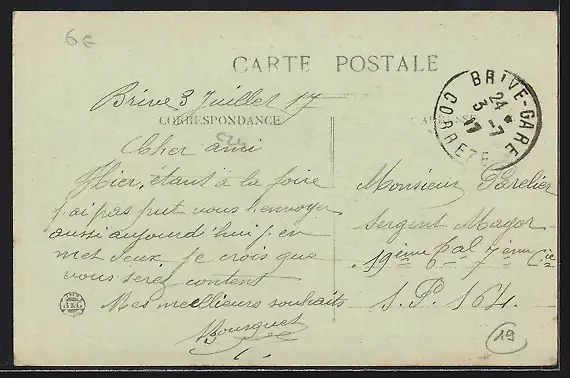 6€
CARTE POSTALE
Brive 3 Juillet 17
CORRESPONDANCE
BRIVE-GARE
24 *
3 -7
17
CORREZE
Cher ami
Hier, étant à la foire
j'ai pas put vous l'envoyer
aussi aujourd'hui j'en
met deux je crois que
vous serez content
Mes meilleurs souhaits
Bousquet
A&G
Monsieur
Sergent Major
19ème 7ème Cie
S.P. 164.
19